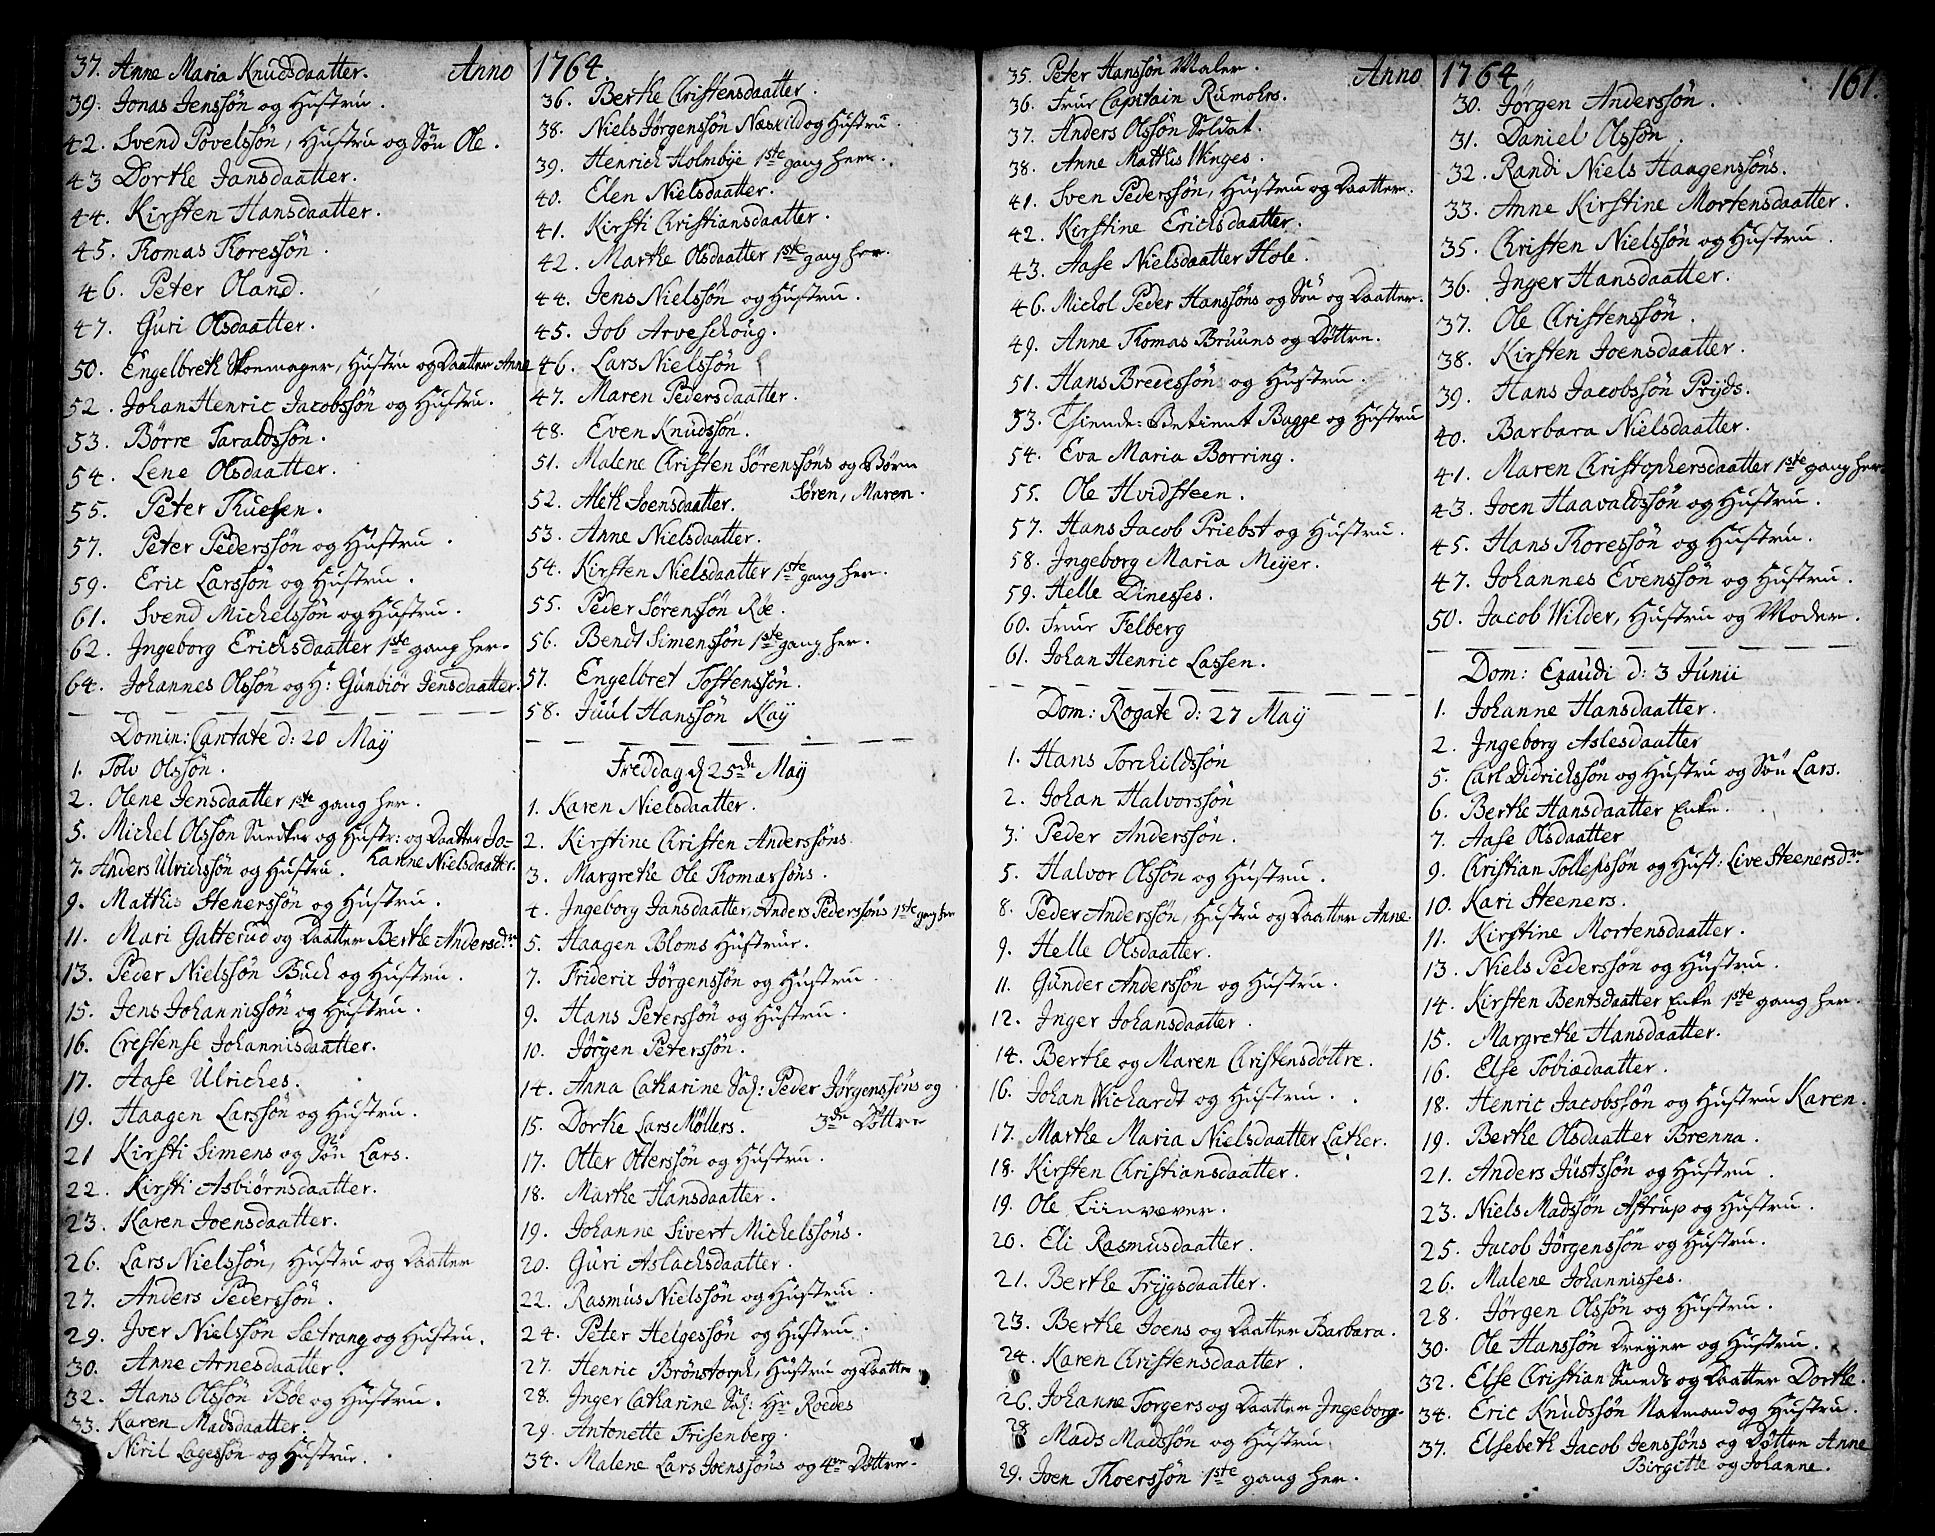 Anno 1764
37. Anne Maria Knudsdaatter.
39. Jonas Jenssøn og Hustru.
42. Svend Povelssøn, Hustru og Søn Ole.
43 Dorthe Jansdaatter.
44. Kirsten Hansdaatter.
45. Thomas Thoressøn.
46. Peter Oland.
47. Guri Olsdaatter.
50. Engelbreth Skoemager, Hustru og Daatter Anne
52. Johan Henric Jacobssøn og Hustru.
53. Børre Taraldssøn.
54. Lene Olsdaatter.
55. Peter Thuesen.
57. Peter Pederssøn og Hustru.
59. Eric Larssøn og Hustru.
61. Svend Michelssøn og Hustru.
62. Ingeborg Erichsdaatter 1ste gang her.
64. Johannes Olssøn og H: Gunbiør Jensdaatter.
Domin: Cantate d: 20 Maÿ
1. Tolv Olssøn.
2. Olene Jensdaatter 1ste gang her.
5. Michel Olssøn Snedker og Hustr: og Daatter Jo=
hanne Nielsdaatter.
7. Anders Ulrichssøn og Hustru.
9. Matthis Stenerssøn og Hustru.
11. Mari Galterud og Daatter Berthe Andersdr.
13. Peder Nielssøn Buch og Hustru.
15. Jens Johannissøn og Hustru.
16. Crestense Johannisdaatter.
17. Aase Ulriches.
19. Haagen Larssøn og Hustru.
21 Kirsti Simens og Søn Lars.
22. Kirsti Asbiørnsdaatter.
23. Karen Joensdaatter.
26. Lars Nielssøn, Hustru og Daatter
27. Anders Pederssøn.
29. Iver Nielssøn Setrang og Hustru.
30. Anne Arnesdaatter.
32. Hans Olssøn Böe og Hustru.
33. Karen Madsdaatter.
Niril Lagessøn og Hustrue.
36. Berthe Christensdaatter.
38. Niels Jørgenssøn Næskild og Hustru.
39. Henrich Holmbÿe 1ste gang her.
40. Elen Nielsdaatter.
41. Kirsti Christiansdaatter.
42. Marthe Olsdaatter 1ste gang her.
44. Jens Nielssøn og Hustru.
45. Job Arveschoug.
46. Lars Nielssøn
47. Maren Pedersdaatter.
48. Even Knudssøn.
51. Malene Christen Sørenssøns og Børn
Søren, Maren.
52. Aleth Joensdaatter.
53. Anne Nielsdaatter.
54. Kirsten Nielsdaatter 1ste gang her.
55. Peder Sørenssøn Röe.
56. Bendt Simenssøn 1ste gang her.
57. Engelbret Tostenssøn.
58. Juul Hanssøn Kaÿ
Freddag d 25de Maÿ
1. Karen Nielsdaatter.
2. Kirstine Christen Anderssøns.
3. Margrethe Ole Thomassøns.
4. Ingeborg Jansdaatter, Anders Pederssøns 1ste gang her
5. Haagen Bloms Hustrue.
7. Frideric Jørgenssøn og Hustru.
9. Hans Peterssøn og Hustru.
10. Jørgen Peterssøn.
14. Anna Catharine Sal: Peder Jørgenssøns og
3de Døttre
15. Dorthe Lars Møllers.
17. Otter Otterssøn og Hustru.
18. Marthe Hansdaatter.
19. Johanne Sivert Michelssøns.
20. Guri Aslachsdaatter.
22. Rasmus Nielssøn og Hustru.
24. Peter Helgessøn og Hustru.
27. Henric Brönstorph, Hustru og Daatter
28. Inger Catharine Sal: Hr Roedes
29. Antonette Frisenberg.
34. Malene Lars Joenssøns og 4re Døttre.
Anno 1764 161.
35. Peter Hanssøn Maler.
36. Frue Capitain Rumohrs.
37. Anders Olssøn Soldat.
38. Anne Mathis Winges.
41. Sven Pederssøn, Hustru og Daatter.
42. Kirstine Erichsdaatter.
43. Aase Nielsdaatter Hole.
46. Michol Peder Hanssøns og Søn og Daatter.
49. Anne Thomas Bruuns og Døttre.
51. Hans Bredessøn og Hustru.
53. Tiende-Betient Bagge og Hustru
54. Eva Maria Borring.
55. Ole Hvidsteen.
57. Hans Jacob Priebst og Hustru.
58. Ingeborg Maria Meÿer.
59. Helle Dinesses.
60. Frue Felberg
61. Johan Henric Lassen.
Dom: Rogate d: 27 Maÿ
1. Hans Torchildssøn
2. Johan Halvorssøn
3. Peder Anderssøn.
5. Halvor Olssøn og Hustru.
8. Peder Anderssøn, Hustru og Daatter Anne.
9. Helle Olsdaatter.
11. Gunder Anderssøn og Hustru.
12. Inger Johansdaatter.
14. Berthe og Maren Christensdøttre.
16. Johan Wichardt og Hustru.
17. Marthe Maria Nielsdaatter Lather.
18. Kirsten Christiansdaatter.
19. Ole Liinvæver.
20. Eli Rasmusdaatter.
21. Berthe Trÿgsdaatter.
23. Berthe Joens og Daatter Barbara.
24. Karen Christensdaatter.
26. Johanne Torgers og Daatter Ingeborg.
28 Mads Madssøn og Hustru.
29. Joen Thoerssøn 1ste gang her.
30. Jørgen Anderssøn.
31. Daniel Olssøn.
32. Randi Niels Haagenssøns.
33. Anne Kirstine Mortensdaatter.
35. Christen Nielssøn og Hustru.
36. Inger Hansdaatter.
37. Ole Christenssøn.
38. Kirsten Joensdaatter.
39. Hans Jacobssøn Prÿds.
40. Barbara Nielsdaatter.
41. Maren Christophersdaatter 1ste gang her
43. Joen Haavaldssøn og Hustru.
45. Hans Thoressøn og Hustru.
47. Johannes Evenssøn og Hustru.
50. Jacob Wilder, Hustru og Moder.
Dom: Exaudi d: 3 Junii
1. Johanne Hansdaatter.
2. Ingeborg Aslesdaatter
5. Carl Didrichssøn og Hustru og Søn Lars.
6. Berthe Hansdaatter Enke.
7. Aase Olsdaatter
9. Christian Tollefssøn og Hust: Live Steenersdr.
10. Kari Steeners.
11. Kirstine Mortensdaatter.
13. Niels Pederssøn og Hustru.
14. Kirsten Bentsdaatter Enke 1ste gang her.
15. Margrethe Hansdaatter.
16. Else Tobiædaatter.
18. Henric Jacobssøn og Hustru Karen.
19. Berthe Olsdaatter Brenna.
21. Anders Justssøn og Hustru
23. Niels Madssøn Astrup og Hustru.
25. Jacob Jørgenssøn og Hustru.
26. Malene Johannisses.
28. Jørgen Olssøn og Hustru.
30. Ole Hanssøn Dreyer og Hustru.
32. Else Christian Smeds og Daatter Dorthe.
34. Eric Knudssøn Natmand og Hustru.
37. Elsebeth Jacob Jenssøns og Døttre Anne
Birgitte og Johanne.